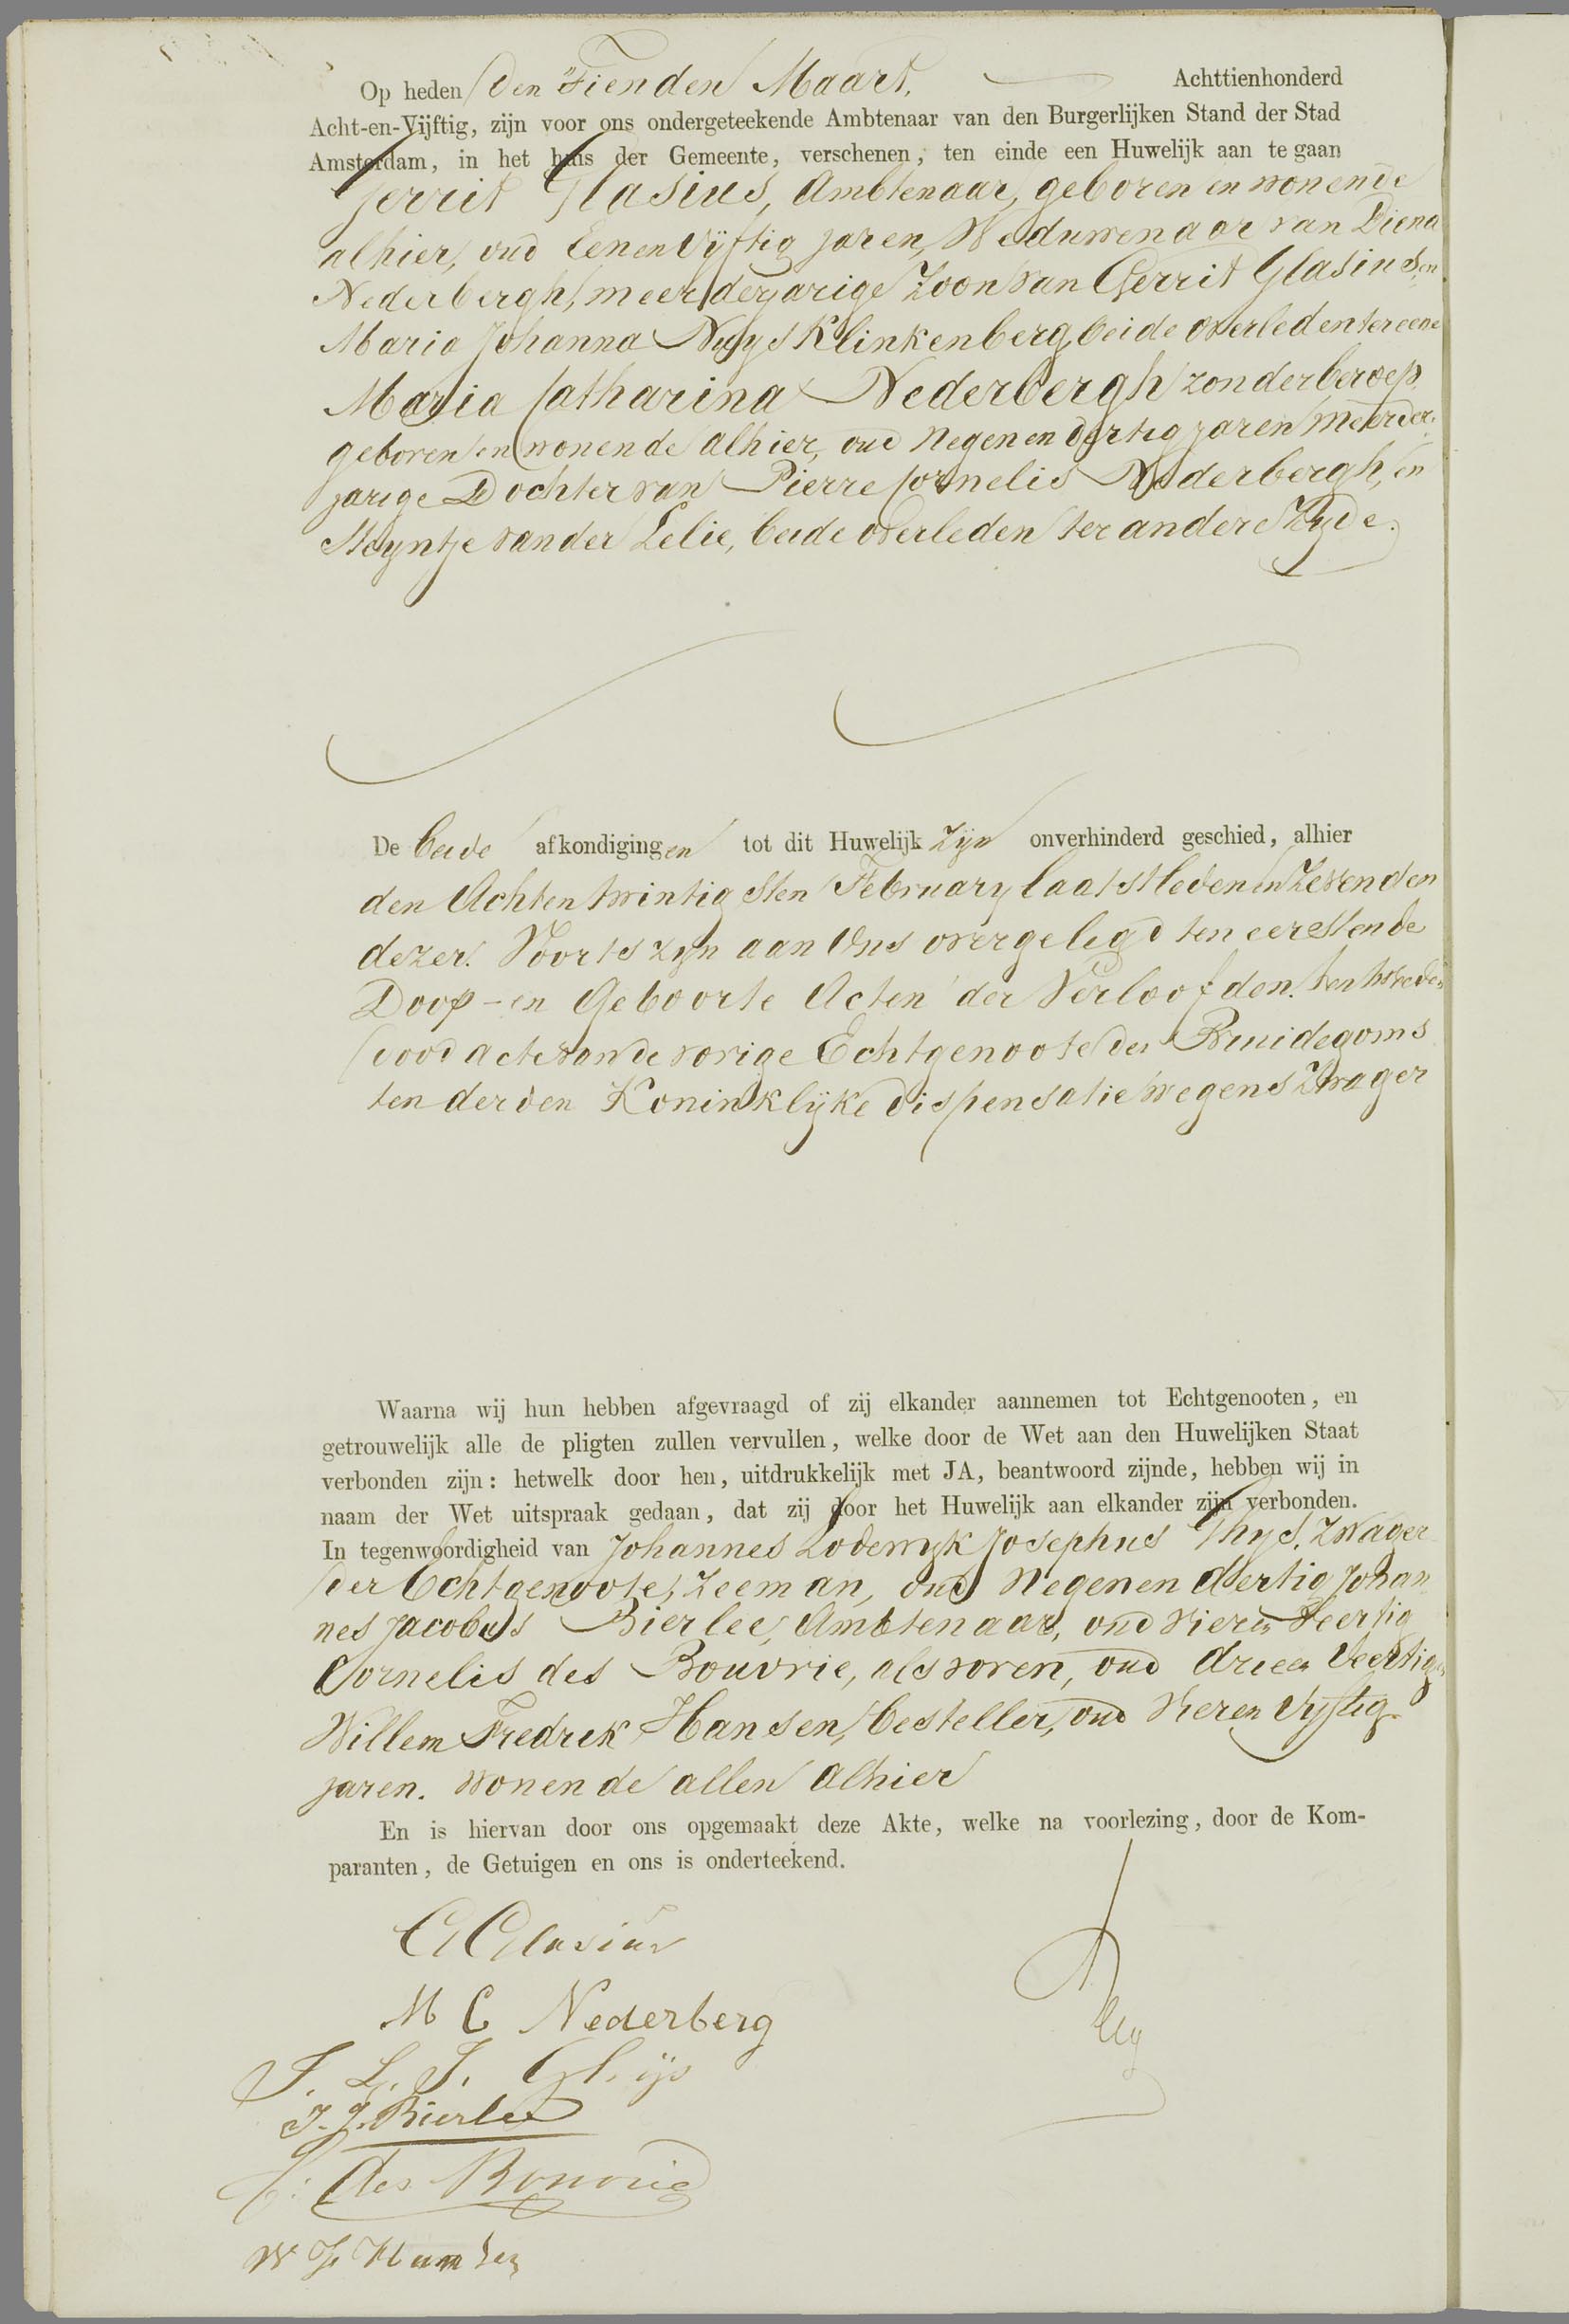 Op heden den Tienden Maart, Achttienhonderd
Acht-en-Vijftig, zijn voor ons ondergeteekende Ambtenaar van den Burgerlijken Stand der Stad
Amsterdam, in het huis der Gemeente, verschenen, ten einde een Huwelijk aan te gaan
Gerrit Glasius, Ambtenaar, geboren en wonende
alhier, oud Eenenvijftig jaren, Weduwenaar van Diena
Nederbergh, meerderjarige Zoon van Gerrit Glasius, en
Maria Johanna Nuys Klinkenberg, beide overleden ter eene
Maria Catharina Nederbergh zonder beroep
geboren en wonende alhier, oud Negenendertig jaren meerder-
jarige Dochter van Pierre Cornelis Nederbergh, en
Steyntje van der Lelie, beide overleden ter andere Zyde.
De beide afkondigingen tot dit Huwelijk zijn onverhinderd geschied, alhier
den Achtentwintigsten February laatstleden en Zevenden
dezer. Voorts zyn aan Ons overgelegd ten eersten de
Doop- en Geboorte Acten der Verloofden. ten tweeden
dood acte van de vorige Echtgenoote des Bruidegoms
ten derden Koninklyke dispensatie wegens Zwager
Waarna wij hun hebben afgevraagd of zij elkander aannemen tot Echtgenooten, en
getrouwelijk alle de pligten zullen vervullen, welke door de Wet aan den Huwelijken Staat
verbonden zijn: hetwelk door hen, uitdrukkelijk met JA, beantwoord zijnde, hebben wij in
naam der Wet uitspraak gedaan, dat zij door het Huwelijk aan elkander zijn verbonden.
In tegenwoordigheid van Johannes Lodewyk Josephus Ghys, Zwager
der Echtgenoote, Zeeman, oud Negenendertig Johan
nes Jacobus Bierlee, Ambtenaar, oud Vieren Veertig
Cornelis des Bouvrie, als voren, oud drieen Veertig en
Willem Fredrik Hansen, besteller, oud Vieren Vyftig
jaren. wonende allen alhier
En is hiervan door ons opgemaakt deze Akte, welke na voorlezing, door de Kom-
paranten, de Getuigen en ons is onderteekend.
G Glasius
M C Nederberg
J. L. J. Ghijs
J. J. Bierlee
C: des Bouvrie
W F Hansen